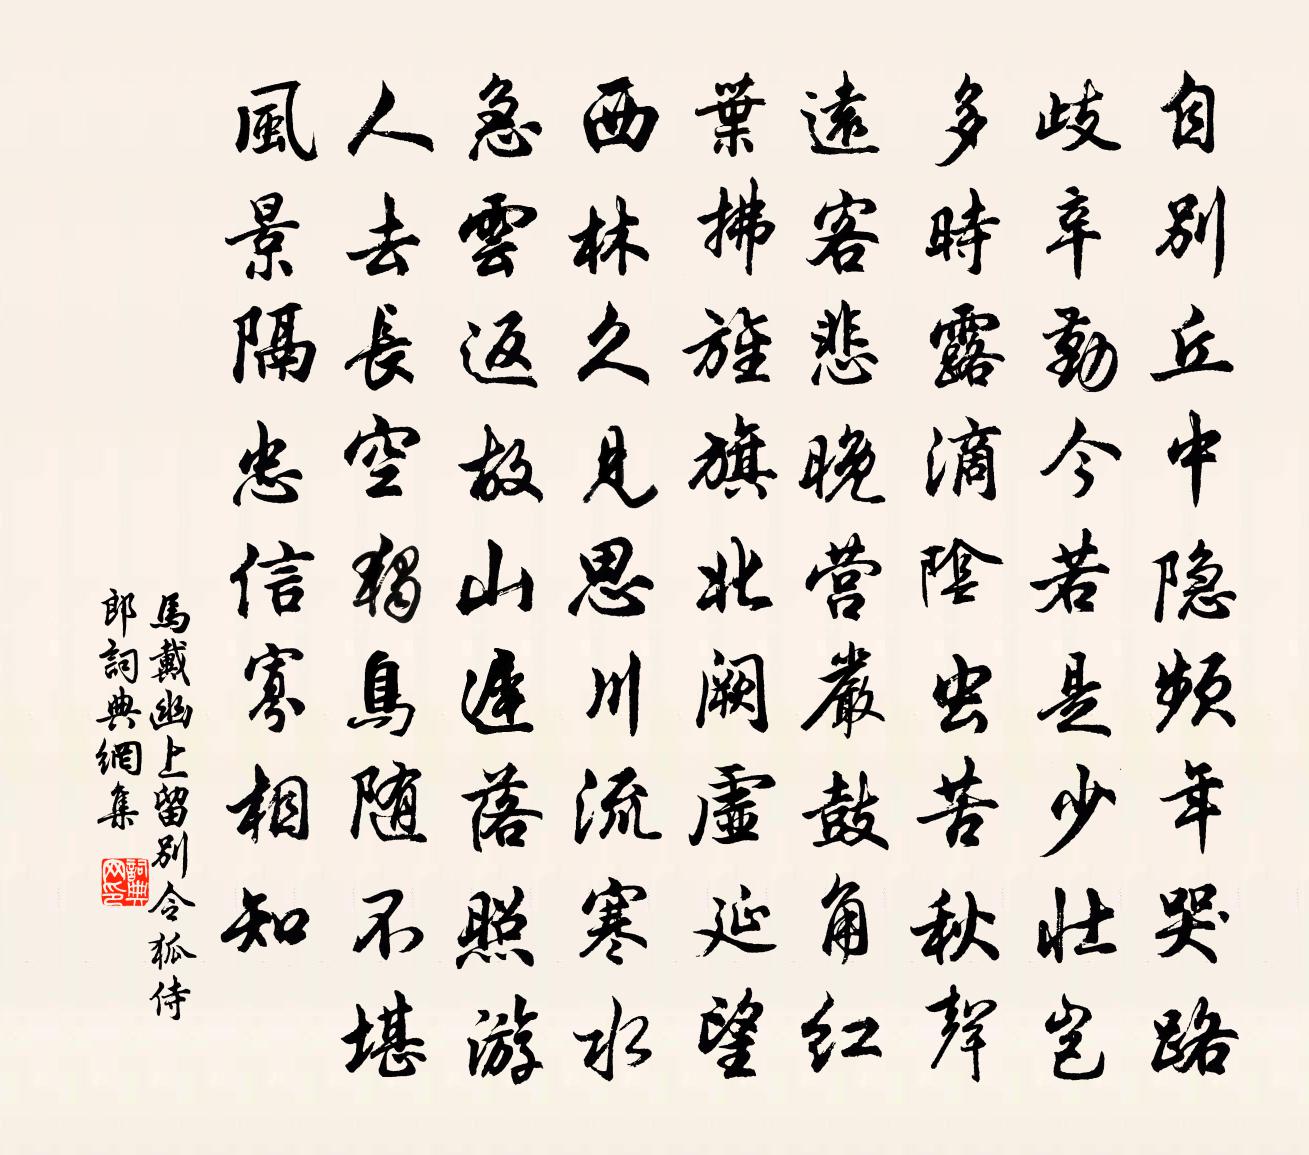 自別丘中隐頻年哭路
歧辛勤今若是少壮豈
多時露滴陰虫苦秋聲
遠客悲晚营嚴鼓角红
葉拂旌旗北阙虛延望
西林久見思川流寒水
急雲返故山遲落照游
人去長空獨鳥随不堪
風景隔忠信寡相知
馬戴幽上留別令狐侍
郎詞典網集
詞典网印